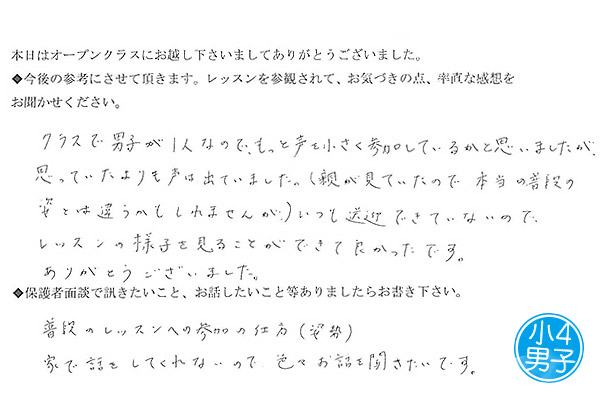 本日はオープンクラスにお越し下さいましてありがとうございました。
❖今後の参考にさせて頂きます。レッスンを参観されて、お気づきの点、率直な感想を
お聞かせください。
クラスで男子が1人なので、もっと声も小さく参加しているかと思いましたが、
思っていたよりも声は出ていました。(親が見ていたので本当の普段の
姿とは違うかもしれませんが。)いつも送迎できていないので、
レッスンの様子を見ることができて良かったです。
ありがとうございました。
❖保護者面談で訊きたいこと、お話したいこと等ありましたらお書き下さい。
普段のレッスンへの参加の仕方(姿勢)
家で話をしてくれないので色々お話を聞きたいです。
小4
男子